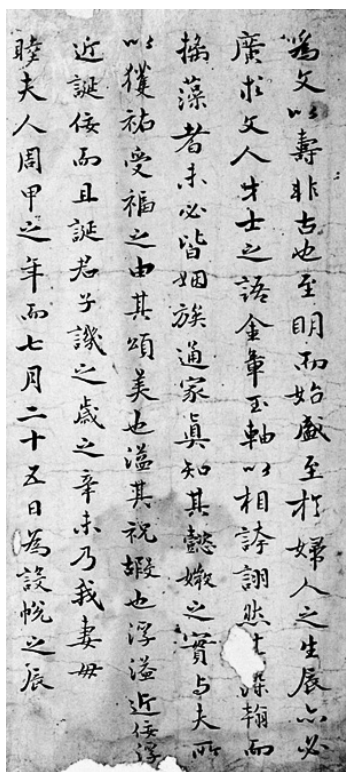 爲文以壽非古也至明而始盛至於婦人之生辰亦必
廣求文人才士之語金章玉軸以相誇詡然染翰而
摛藻者未必皆姻族通家眞知其懿媺之實与夫所
以獲祐受福之由其頌美也溢其祝嘏也浮溢近佞浮
近誕佞而且誕君子譏之歲之辛未乃我妻母
睦夫人周甲之年而七月二十五日爲設帨之辰